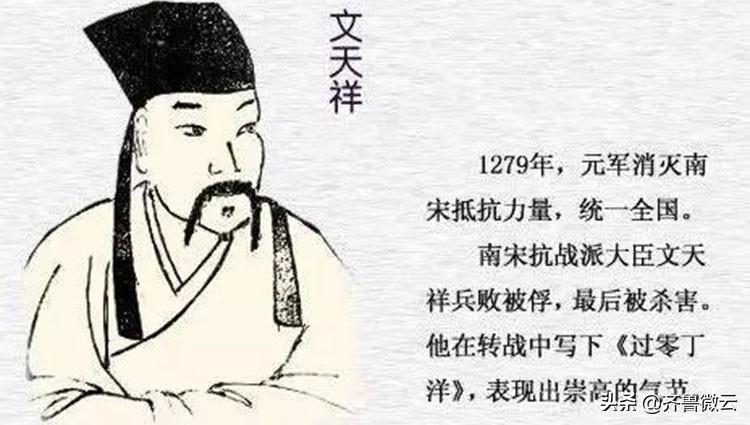 文天祥
1279年，元军消灭南
宋抵抗力量，统一全国。
南宋抗战派大臣文天
祥兵败被俘，最后被杀害。
他在转战中写下《过零丁
洋》，表现出崇高的气节
头条 @齐鲁微云